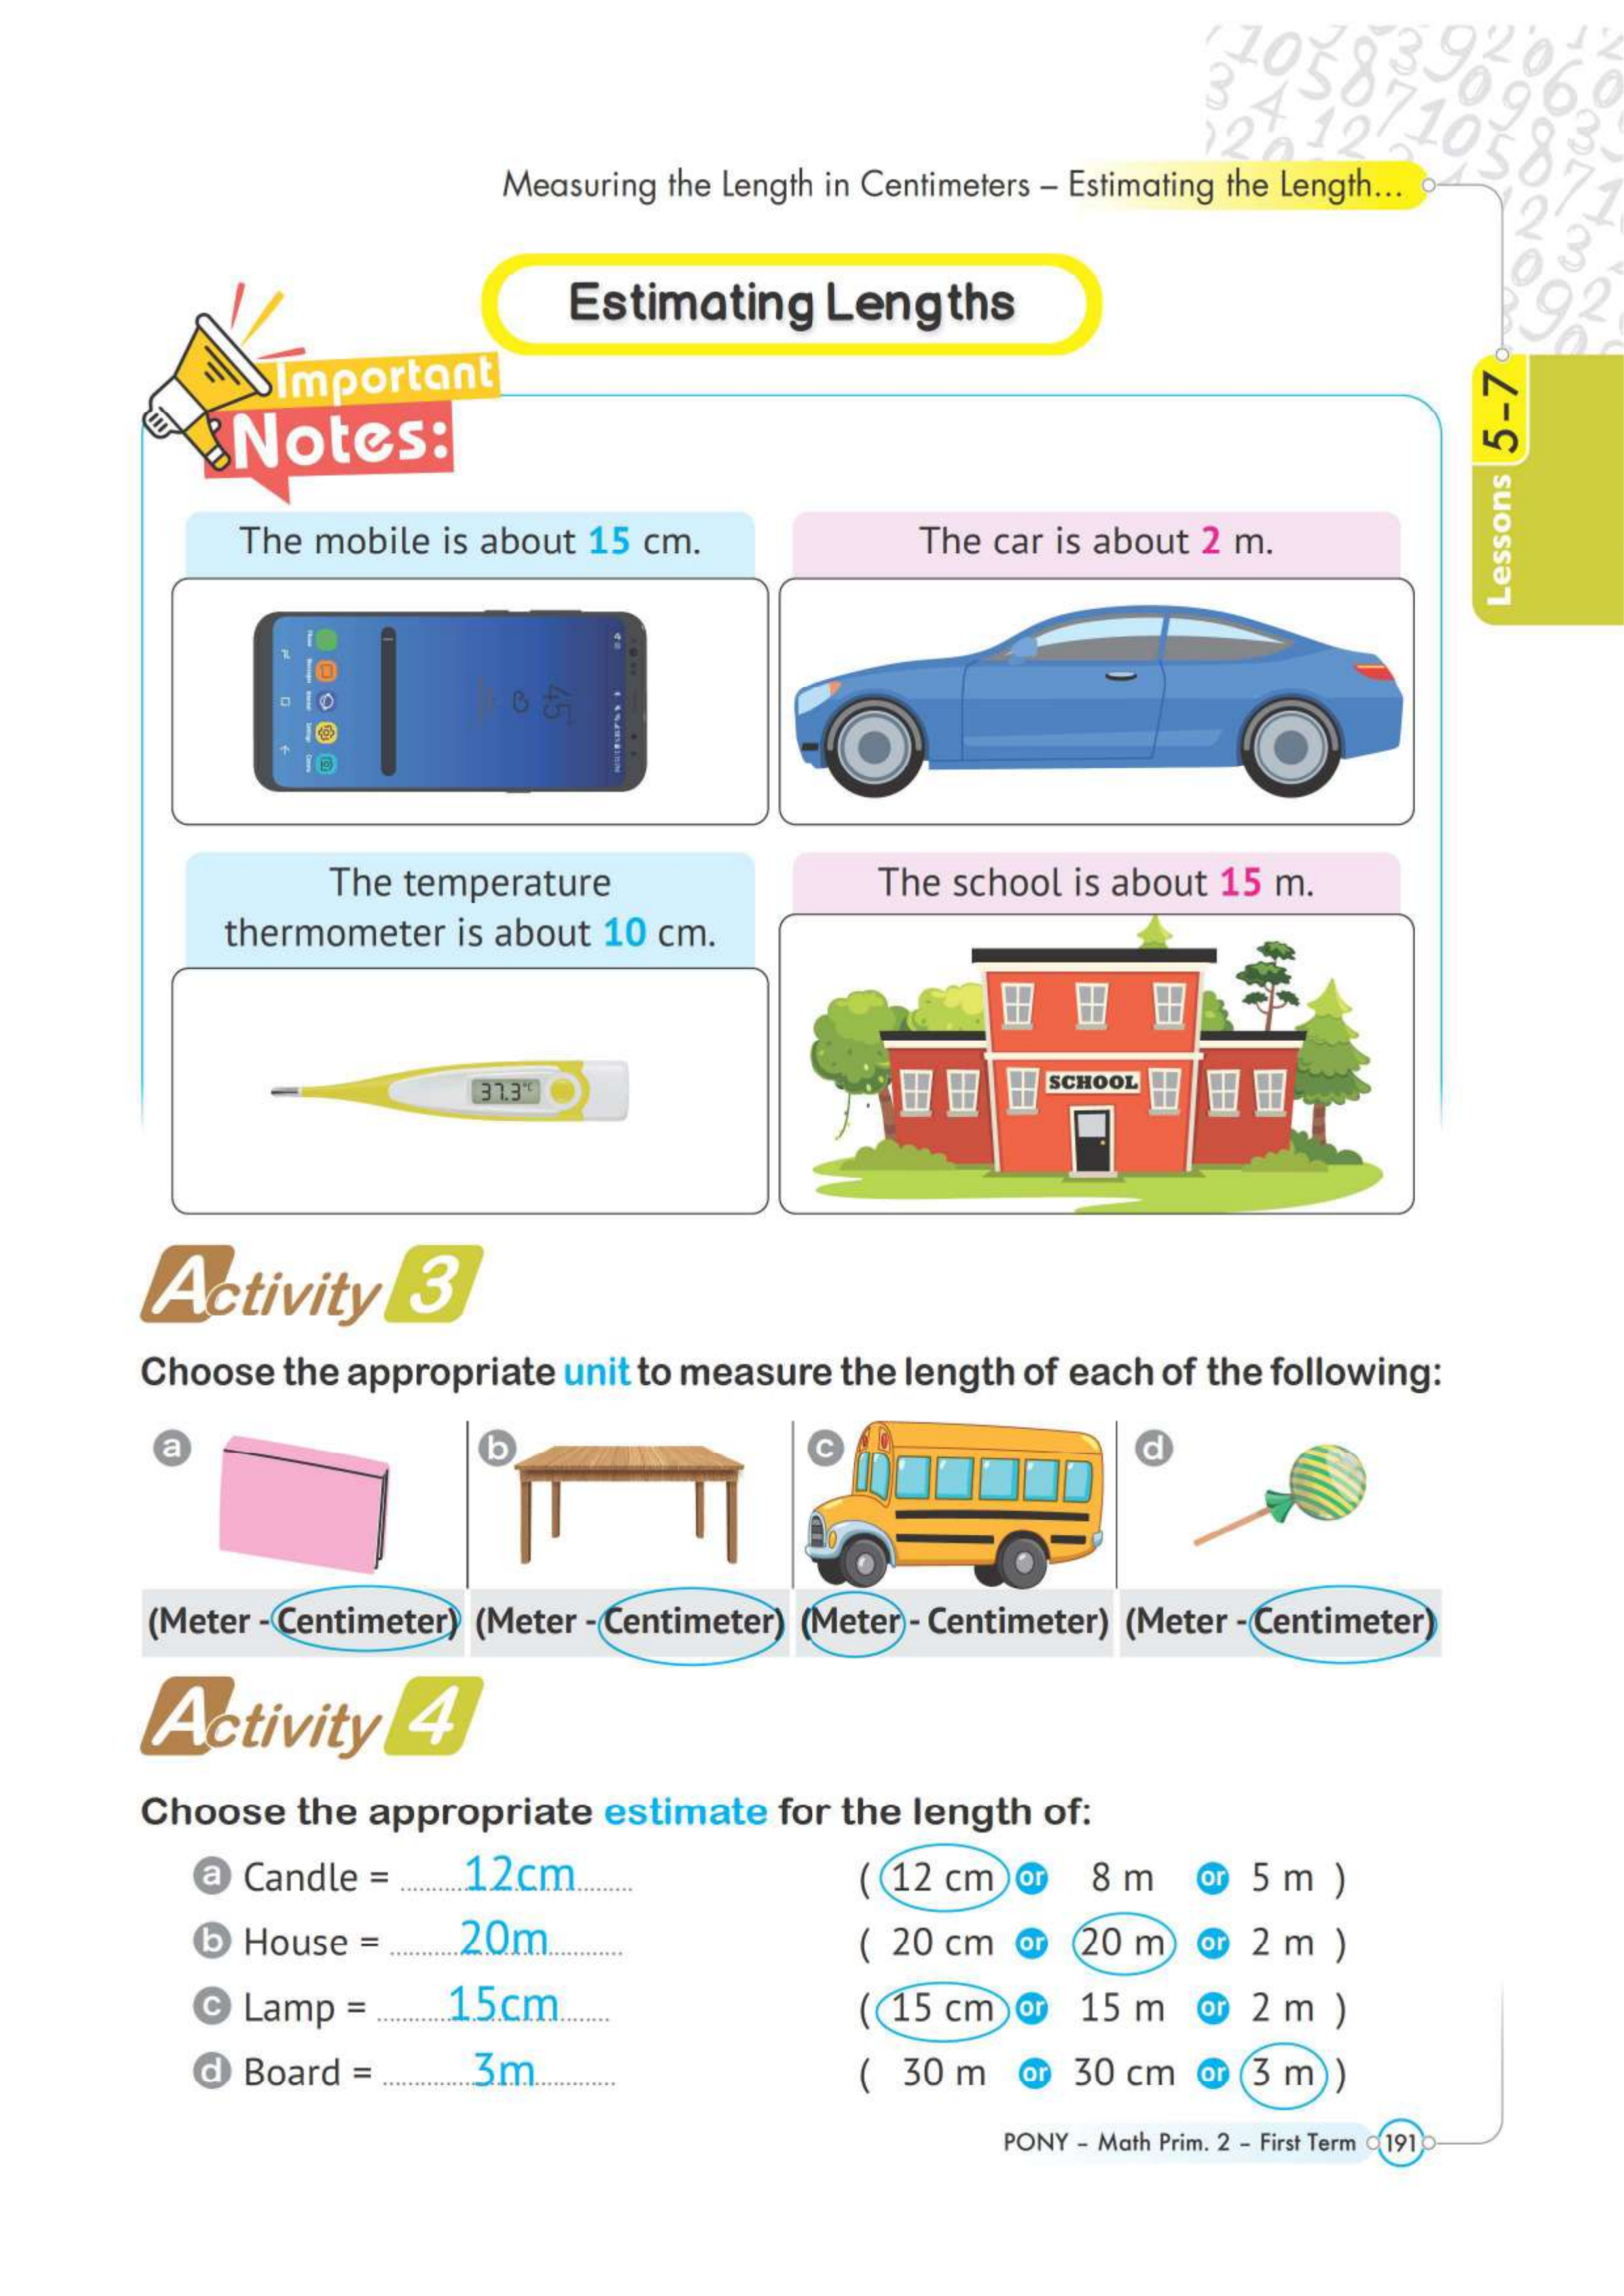 Measuring the Length in Centimeters – Estimating the Length...
Estimating Lengths
Important
Notes:
Lessons 5-7
The mobile is about 15 cm.
The car is about 2 m.
45
The temperature
thermometer is about 10 cm.
The school is about 15 m.
37.3°C
SCHOOL
Activity 3
Choose the appropriate unit to measure the length of each of the following:
a
b
c
d
(Meter - Centimeter) (Meter - Centimeter) (Meter - Centimeter) (Meter - Centimeter)
Activity 4
Choose the appropriate estimate for the length of:
a Candle = ..........12cm......... ( 12 cm or 8 m or 5 m )
b House = ..........20m........... ( 20 cm or 20 m or 2 m )
c Lamp = ..........15cm....... ( 15 cm or 15 m or 2 m )
d Board = .............3m............ ( 30 m or 30 cm or 3 m )
PONY – Math Prim. 2 – First Term 191